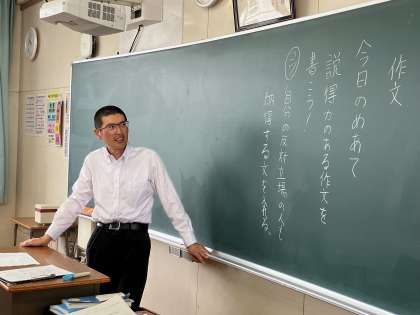 作文
今日のめあて
説得力のある作文を
書こう！
自分の反対立場の人も
納得する文を